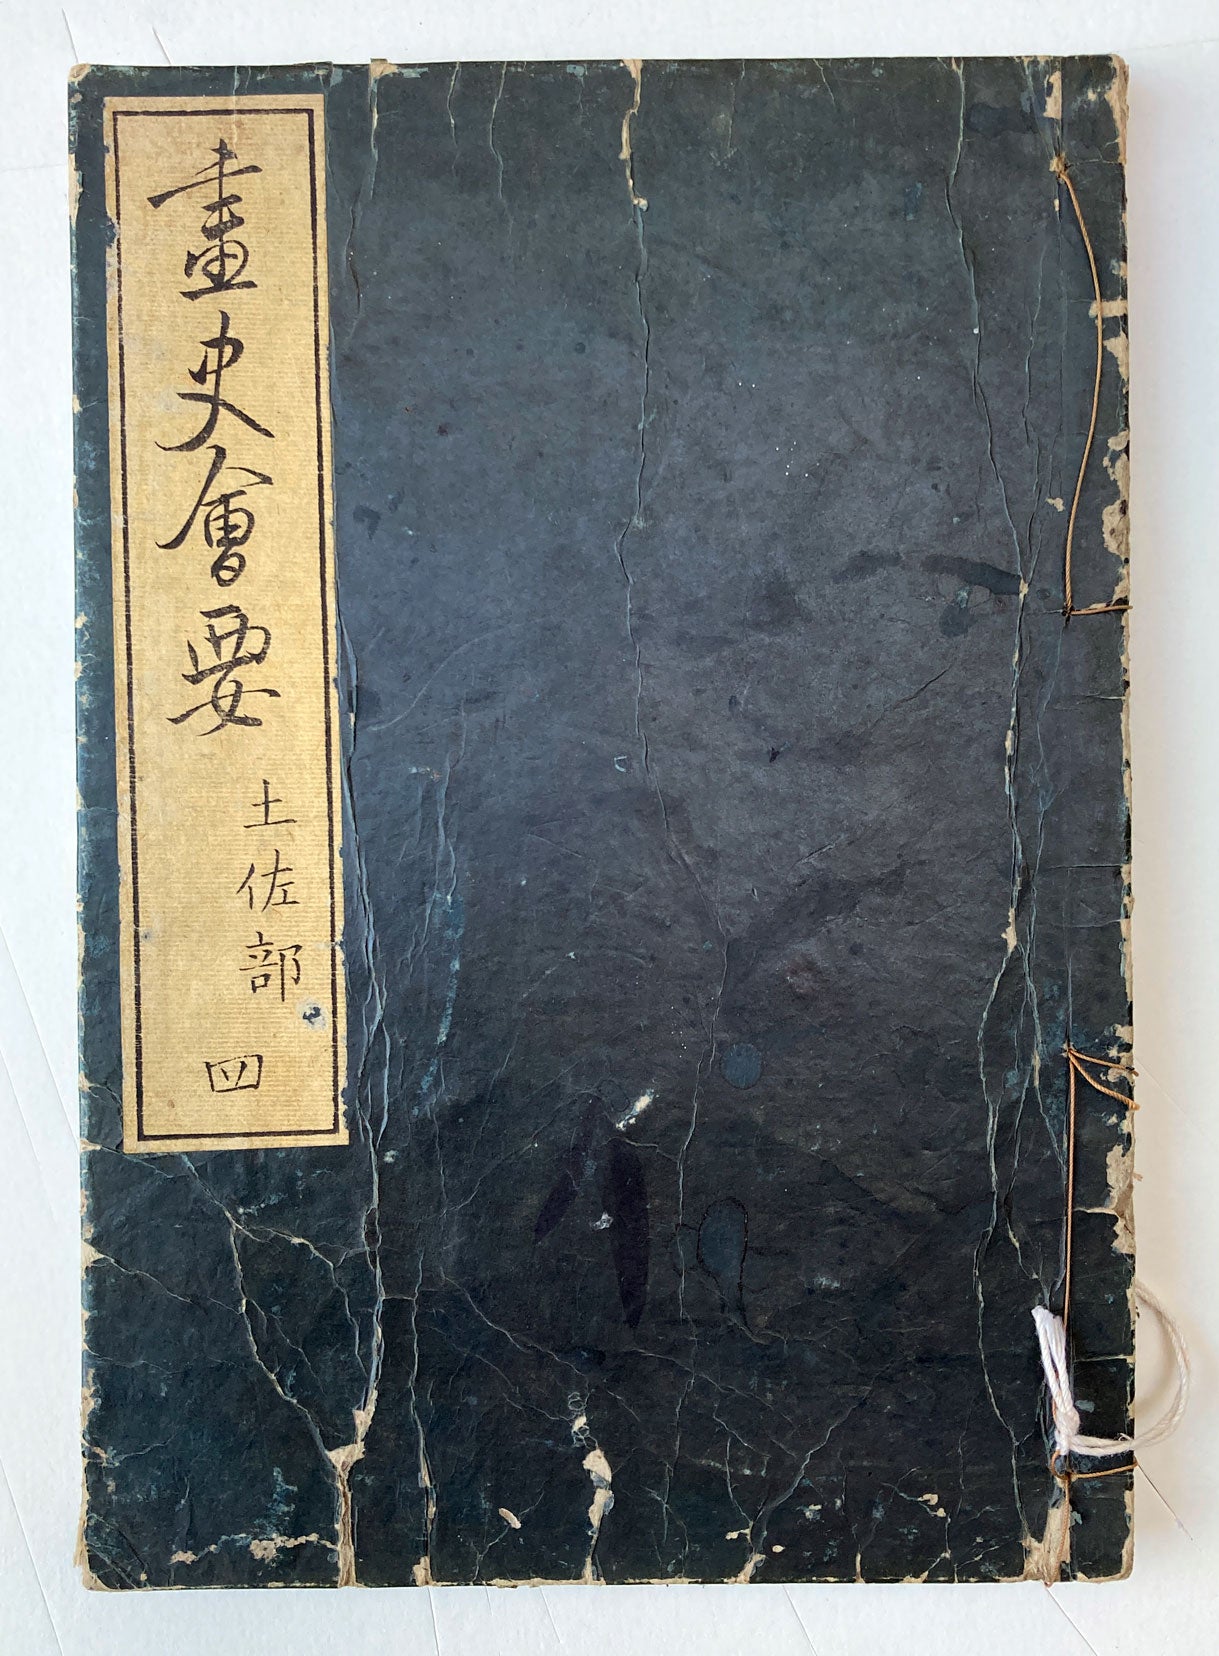 畫史會要
土佐部
四